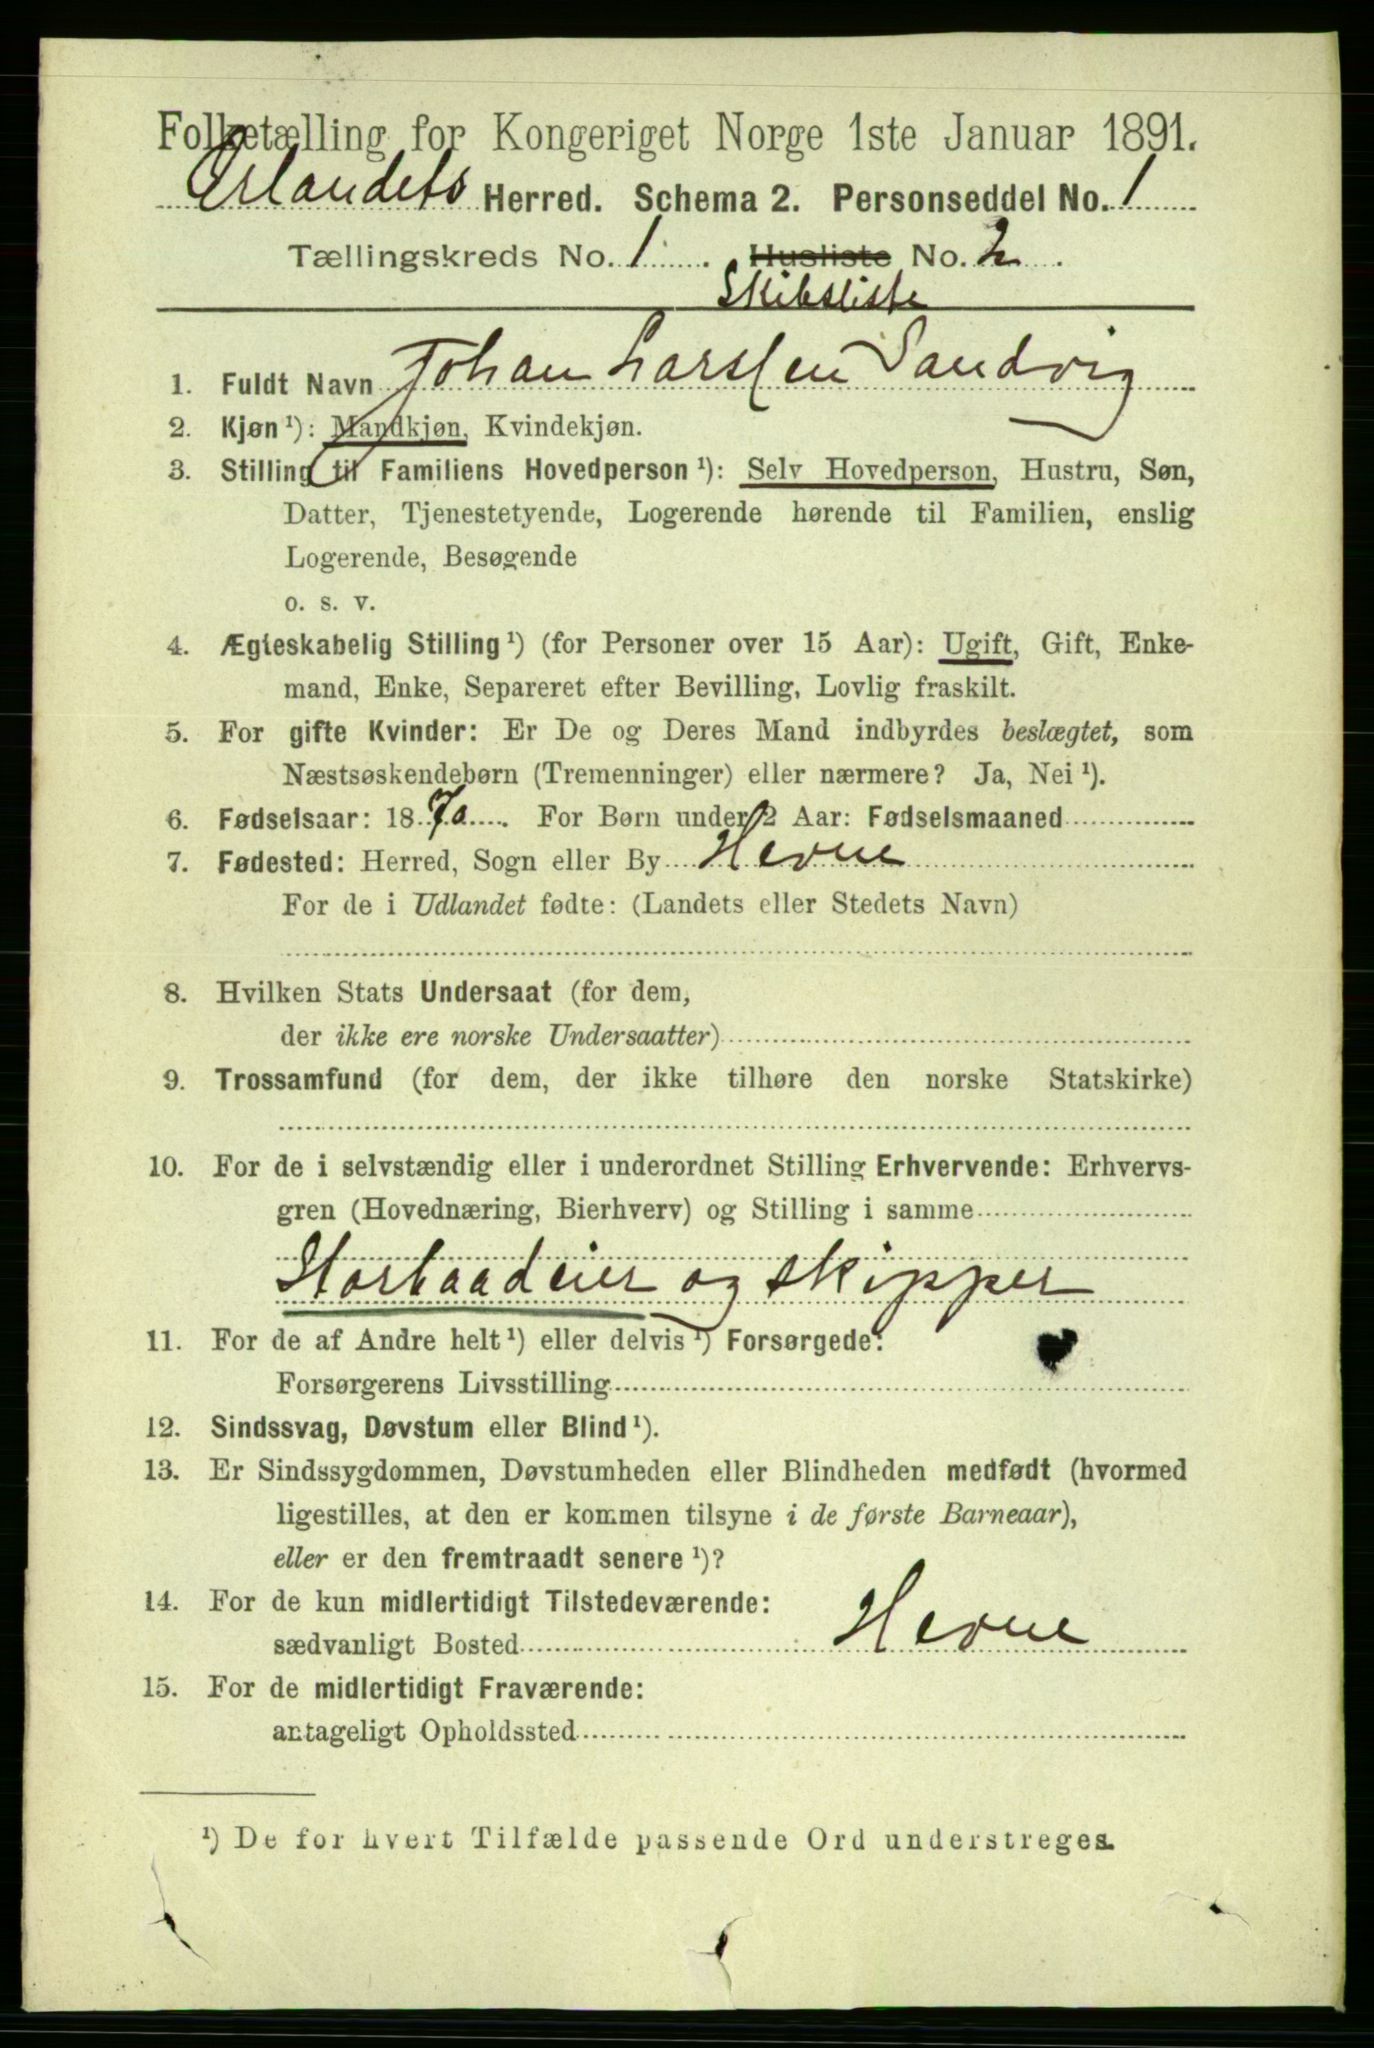 Folketælling for Kongeriget Norge 1ste Januar 1891.
Ørlandets Herred. Schema 2. Personseddel No. 1
Tællingskreds No. 1. Husliste No. 2.
Skibsliste
1. Fuldt Navn Johan Larssen Sandvig
2. Kjøn¹): Mandkjøn, Kvindekjøn.
3. Stilling til Familiens Hovedperson¹): Selv Hovedperson, Hustru, Søn,
Datter, Tjenestetyende, Logerende hørende til Familien, enslig
Logerende, Besøgende
o. s. v.
4. Ægteskabelig Stilling¹) (for Personer over 15 Aar): Ugift, Gift, Enke-
mand, Enke, Separeret efter Bevilling, Lovlig fraskilt.
5. For gifte Kvinder: Er De og Deres Mand indbyrdes beslægtet, som
Næstsøskendebørn (Tremenninger) eller nærmere? Ja, Nei¹).
6. Fødselsaar: 1870. For Børn under 2 Aar: Fødselsmaaned
7. Fødested: Herred, Sogn eller By Hevne
For de i Udlandet fødte: (Landets eller Stedets Navn)
8. Hvilken Stats Undersaat (for dem,
der ikke ere norske Undersaatter)
9. Trossamfund (for dem, der ikke tilhøre den norske Statskirke)
10. For de i selvstændig eller i underordnet Stilling Erhvervende: Erhvervs-
gren (Hovednæring, Bierhverv) og Stilling i samme
Storbaadeier og skipper
11. For de af Andre helt¹) eller delvis¹) Forsørgede:
Forsørgerens Livsstilling
12. Sindssvag, Døvstum eller Blind¹).
13. Er Sindssygdommen, Døvstumheden eller Blindheden medfødt (hvormed
ligestilles, at den er kommen tilsyne i de første Barneaar),
eller er den fremtraadt senere¹)?
14. For de kun midlertidigt Tilstedeværende:
sædvanligt Bosted Hevne
15. For de midlertidigt Fraværende:
antageligt Opholdssted
¹) De for hvert Tilfælde passende Ord understreges.